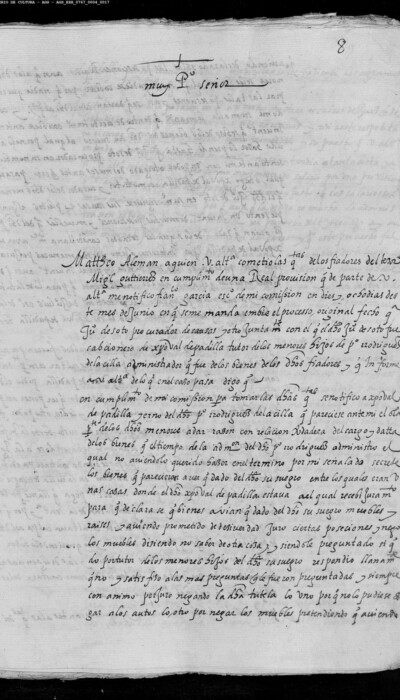 8
muy P.º señor
Mattheo Aleman a quien V. alt.ª cometio las q.tas de los fiadores del
Mig.l guttierrez en cumplim.to de una Real provision q̃ de parte de V.
alt.ª me notifico garcia es.no de mi comission en diez y ocho dias des
te mes de Junio en q̃ se me manda embie el processo original fecho q̃
Ju.º de soto procurador de causas con el q̃ el dho Ju.º de soto fue
de xp̃oval de padilla tutor de los menores hijos de p.º rrodriguez
de la cilla administrador q̃ fue de los bienes de los dhos fiadores y q̃ Informe
a V. alt.ª de lo q̃ en el caso pasa digo q̃
en cumplim.to de mi comission pa tomar las dhas q.tas se notifico a xp̃oval
de padilla yerno del dho p.º rrodriguez de la cilla q̃ pareciese ante mi el
de los dhos menores a dar razon con relacion xurada del cargo y datta
de los bienes q̃ el tiempo de la adm.on del dho p.º rrodriguez administro el
qual no aviendolo querido hazer en el termino por mi señalado secreste
los bienes q̃ parecieron aver quedado del dho su suegro entre los quales eran u
nas casas donde el dho xp̃oval de padilla estava al qual recebi juram.to
para q̃ declarase q̃ bienes avian quedado del dho su suegro muebles y
raises y aviendo prometido de dezir verdad Juro ciertas posesiones y nego
los muebles diziendo no saber de otra cosa y siendole preguntado si q̃
do por tutor de los menores hijos del dho su suegro respondio llanam.te
q̃ no y satisfizo a las mas preguntas q̃ le fueron preguntadas y siempre
con animo perjuro negando la dha tutela lo uno por q̃ no lo pudiese
gar a los autos lo otro por negar los muebles pretendiendo q̃ aviendo